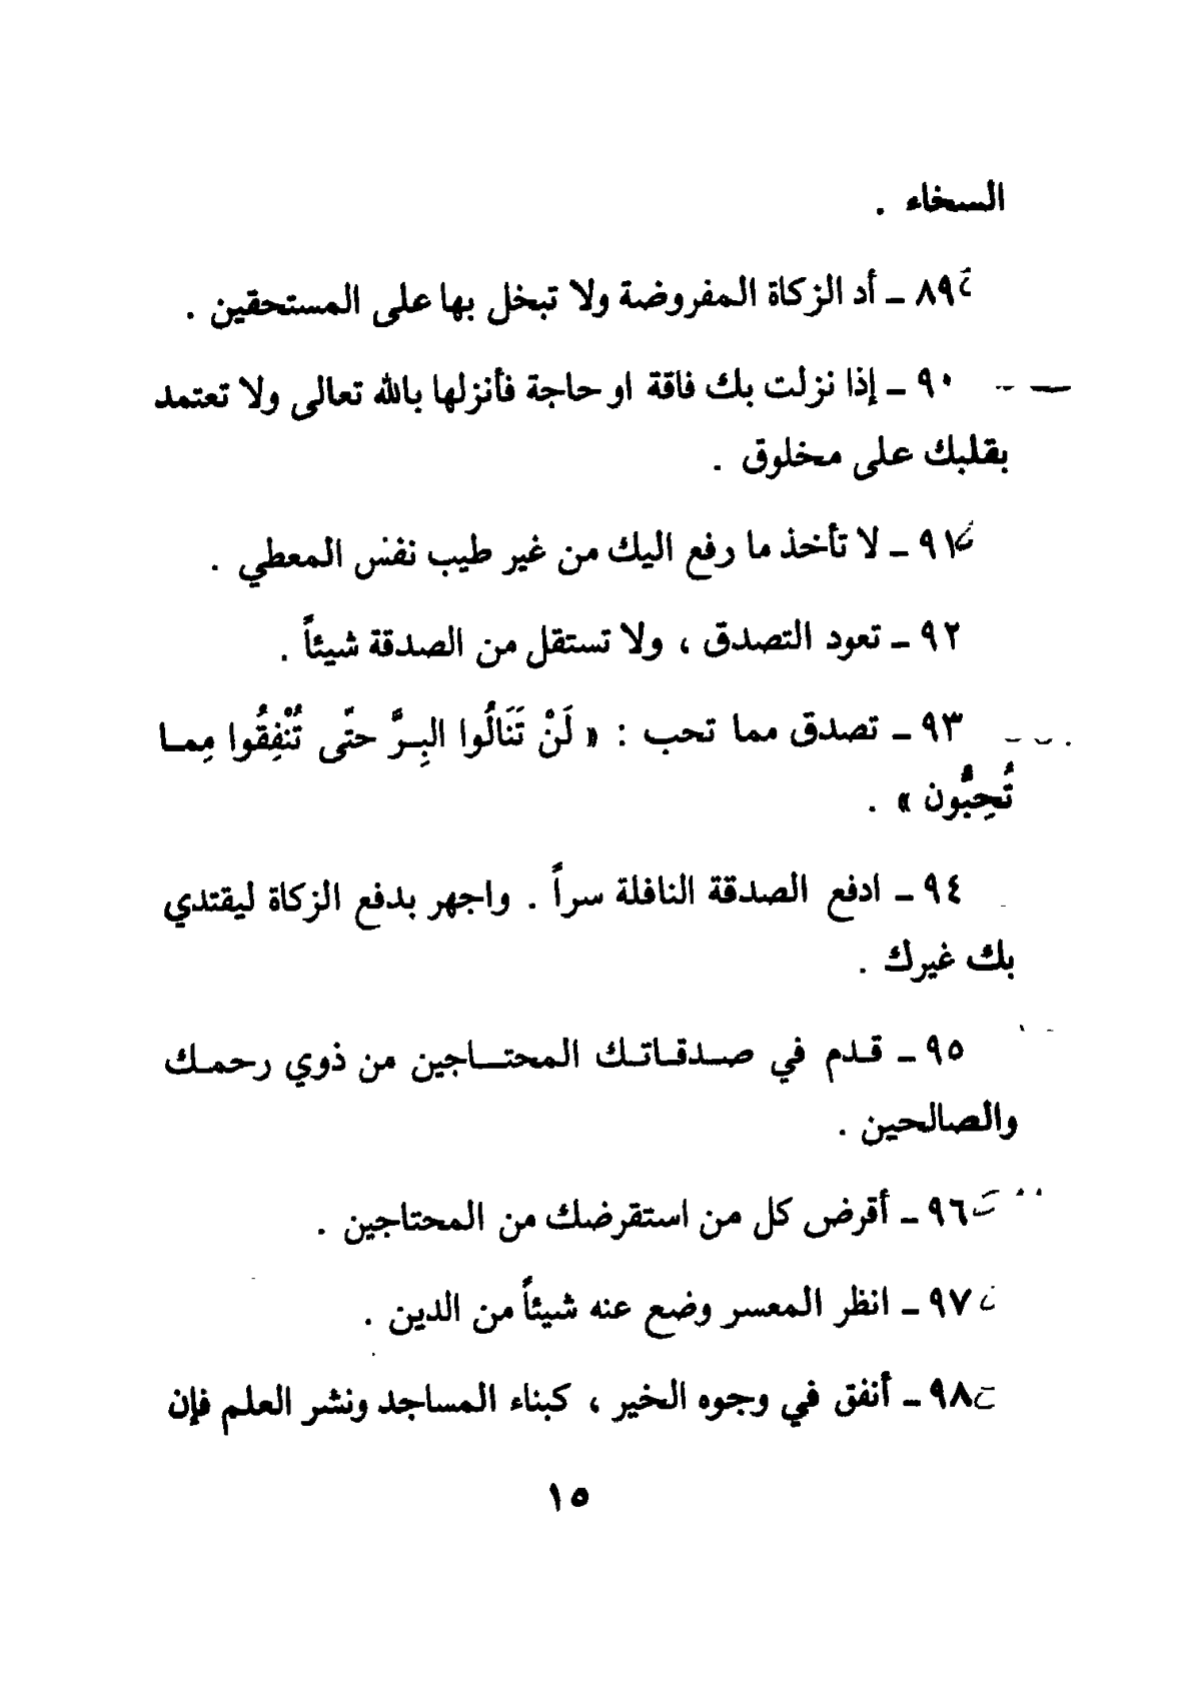 السخاء .
٨٩ ـ أد الزكاة المفروضة ولا تبخل بها على المستحقين .
٩٠ ـ إذا نزلت بك فاقة او حاجة فأنزلها بالله تعالى ولا تعتمد
بقلبك على مخلوق .
٩١ ـ لا تأخذ ما رفع اليك من غير طيب نفس المعطي .
٩٢ ـ تعود التصدق ، ولا تستقل من الصدقة شيئاً .
٩٣ ـ تصدق مما تحب : « لَنْ تَنَالُوا البِرَّ حتّى تُنْفِقُوا مِما
تُحِبُّون » .
٩٤ ـ ادفع الصدقة النافلة سراً . واجهر بدفع الزكاة ليقتدي
بك غيرك .
٩٥ ـ قدم في صدقاتك المحتاجين من ذوي رحمك
والصالحين .
٩٦ ـ أقرض كل من استقرضك من المحتاجين .
٩٧ ـ انظر المعسر وضع عنه شيئاً من الدين .
٩٨ ـ أنفق في وجوه الخير ، كبناء المساجد ونشر العلم فإن
١٥